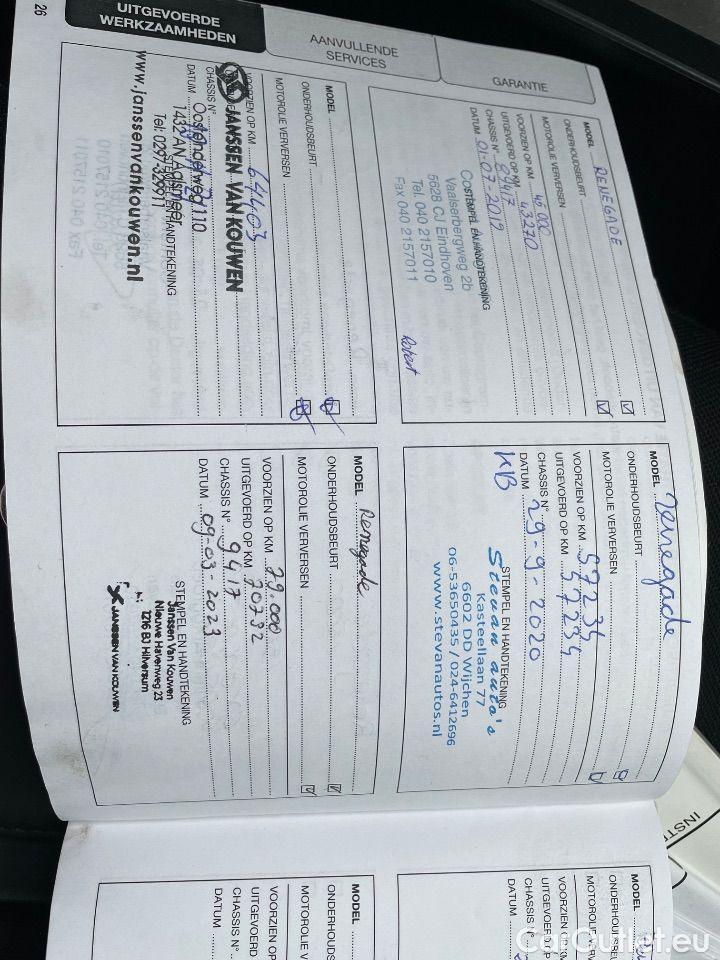 26
UITGEVOERDE
WERKZAAMHEDEN
AANVULLENDE
SERVICES
GARANTIE
MODEL RENEGADE
ONDERHOUDSBEURT
MOTOROLIE VERVERSEN
VOORZIEN OP KM 45.000
UITGEVOERD OP KM 43270
CHASSIS N° 89417
DATUM 01-07-2019
STEMPEL EN HANDTEKENING
Vaalserbergweg 2b
5628 CJ Eindhoven
Tel. 040 2157010
Fax 040 2157011
Robert
MODEL renegade
ONDERHOUDSBEURT
MOTOROLIE VERVERSEN
VOORZIEN OP KM 57234
UITGEVOERD OP KM 57234
CHASSIS N°
DATUM 29-9-2020
STEMPEL EN HANDTEKENING
KB
Stevan auto's
Kasteellaan 77
6602 DD Wijchen
06-53650435 / 024-6412696
www.stevanautos.nl
MODEL
ONDERHOUDSBEURT
MOTOROLIE VERVERSEN
VOORZIEN OP KM
64403
JANSSEN VAN KOUWEN
CHASSIS N°
DATUM
Oosteinderweg 110
1432 AN Aalsmeer
STEMPEL EN HANDTEKENING
Tel: 0297-369911
www.janssenvankouwen.nl
MODEL Renegade
ONDERHOUDSBEURT
MOTOROLIE VERVERSEN
VOORZIEN OP KM 79.000
UITGEVOERD OP KM 70792
CHASSIS N° 9417
DATUM 09-03-2023
STEMPEL EN HANDTEKENING
Janssen Van Kouwen
Nieuwe Havenweg 23
1216 BJ Hilversum
JANSSEN VAN KOUWEN
MODEL
ONDERHOUDS
MOTOROLIE VER
VOORZIEN OP KM
UITGEVOERD
CHASSIS N°
DATUM
MODEL
ONDERHOUDS
MOTOROLIE VERV
VOORZIEN OP KM
UITGEVOERD
CHASSIS N°
DATUM
INSTR
CarOutlet.eu